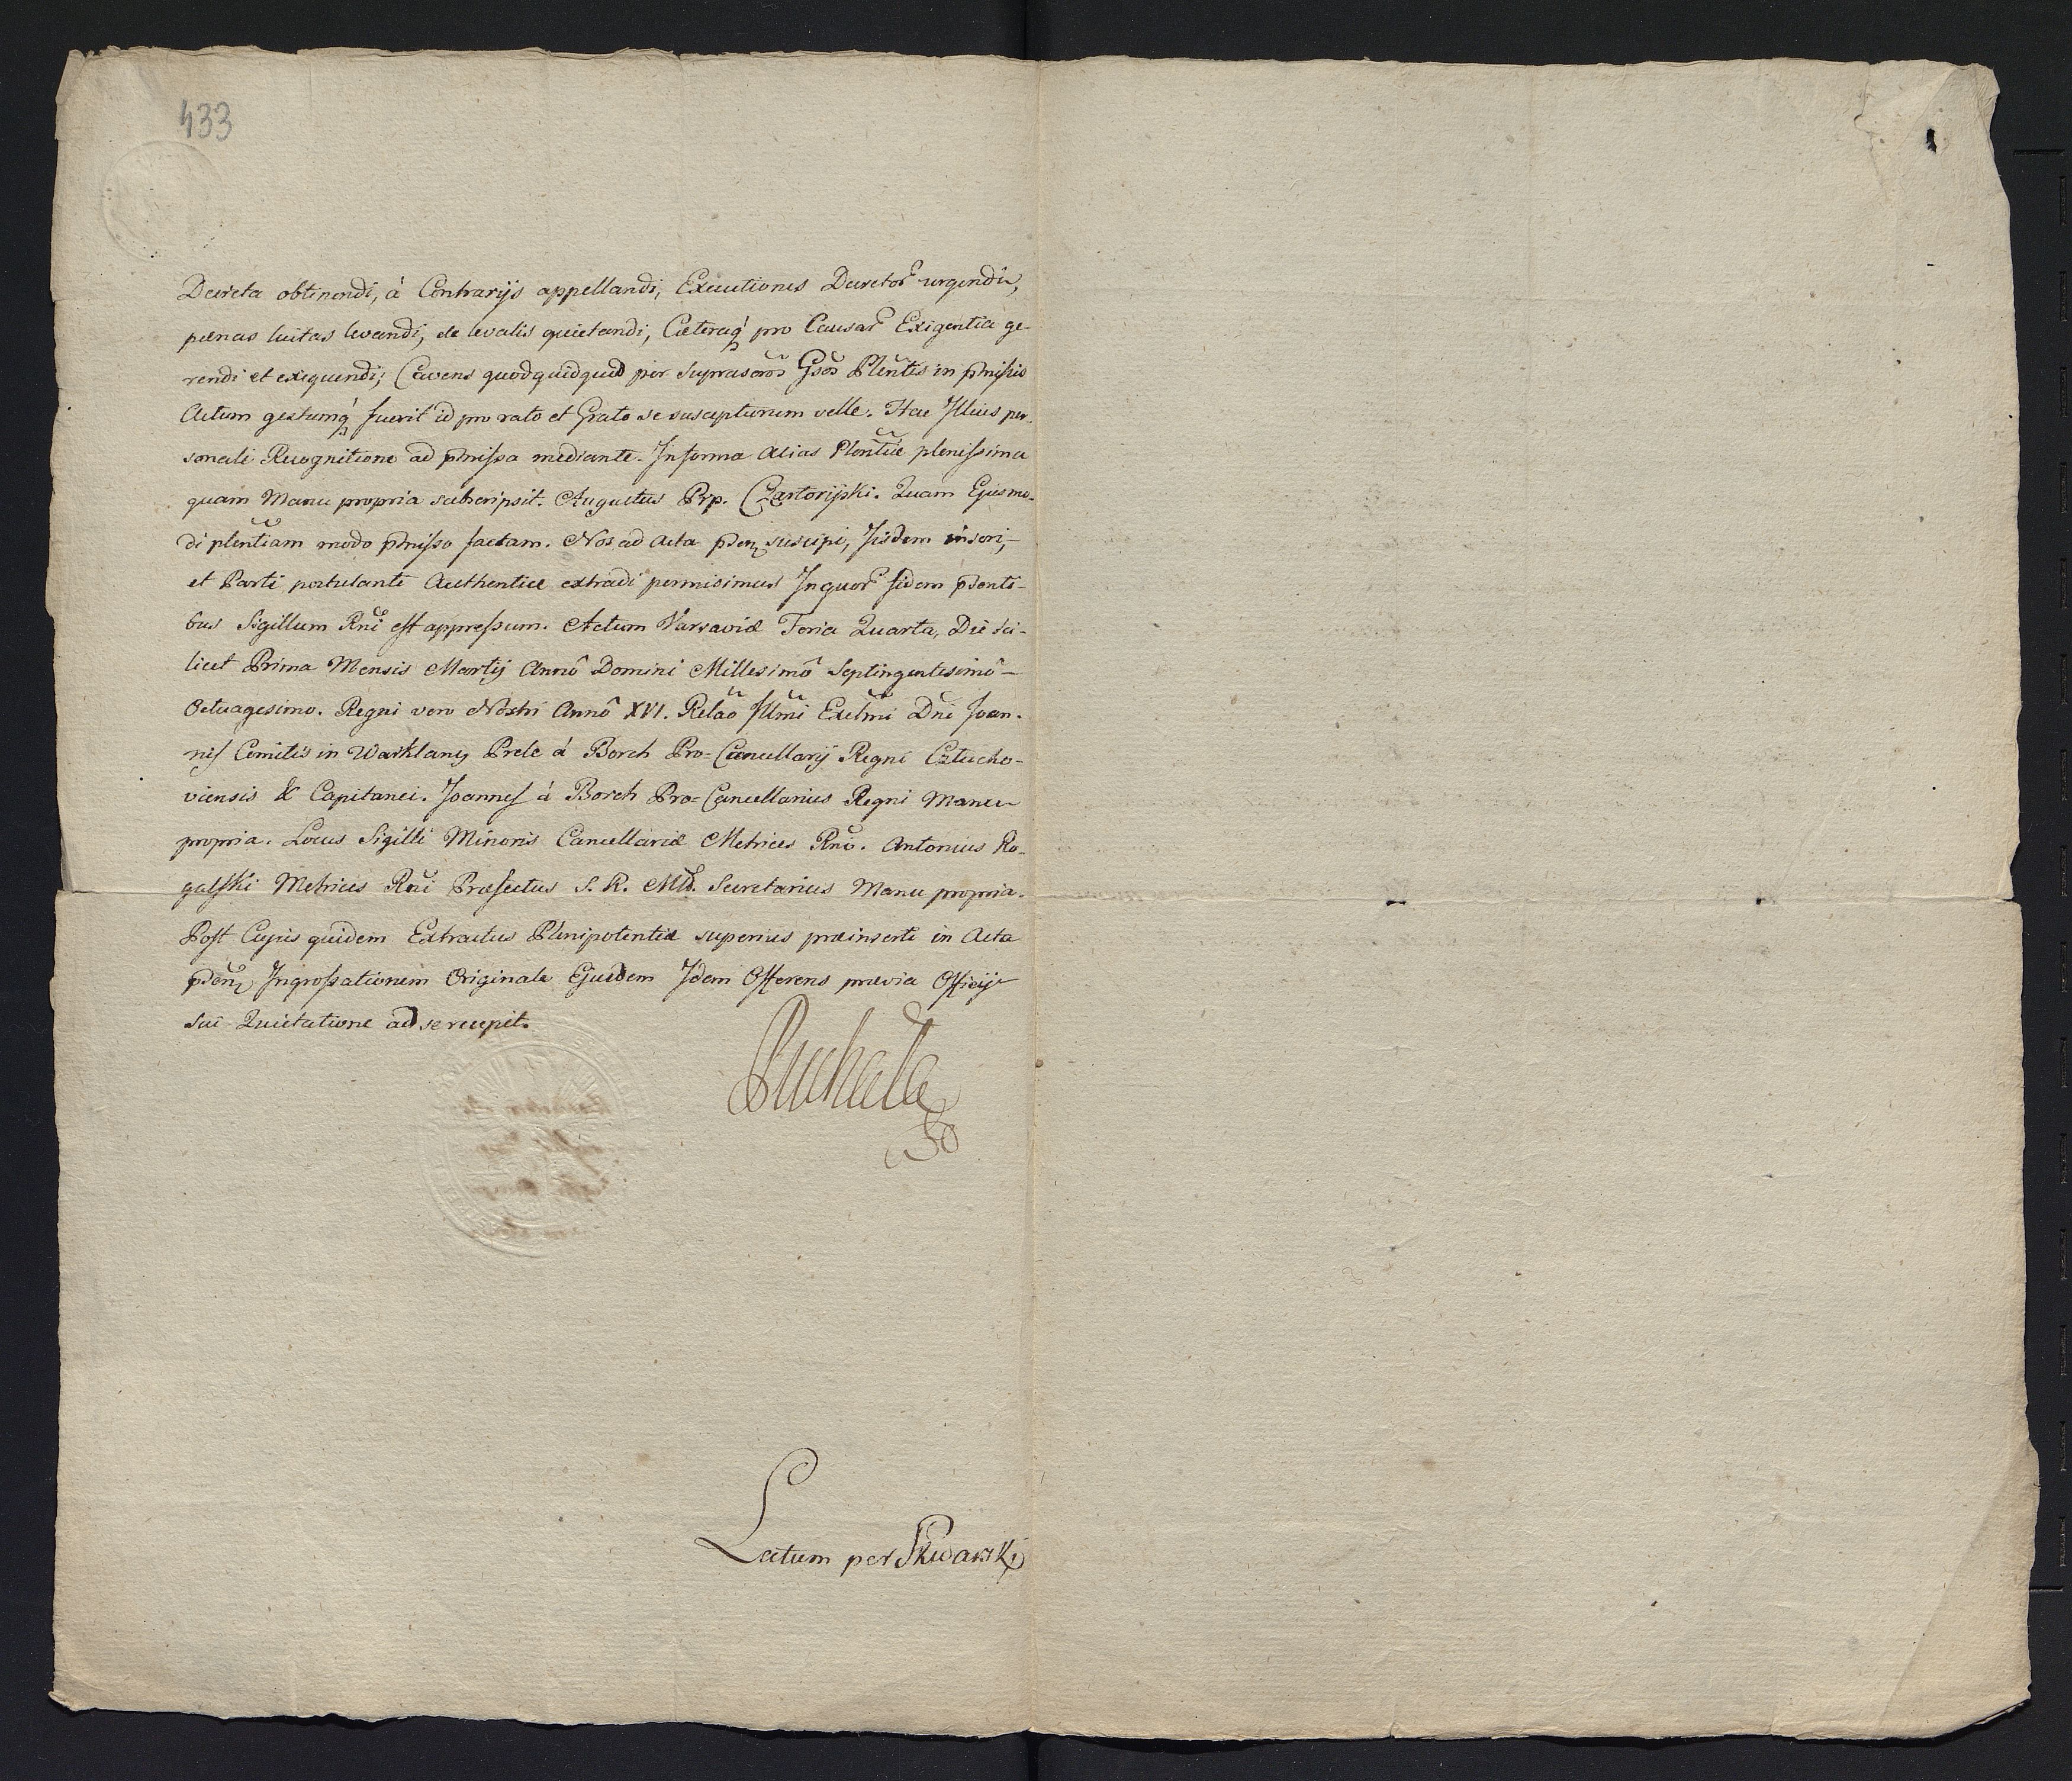 433
Decreta obtinendi, á Contrarijs appellandi, Executiones Decretor̃ urgendi,
pœnas luitas levandi, de levatis quietandi, Cæteraq́ pro Causar̃ Exigentia ge-
rendi et exequendi; Cavens quod quidquid per suprascros Gsos Plentes in pmissis
Actum gestumq́ fuerit id pro rato et Grato se suscepturum velle. Hac Illius per-
sonali Recognitione ad pmissa mediante. In forma alias Plentiæ plenissima
quam Manu propria subscripsit. Augustus Xżę. Czartoryski. Quam Ejusmo-
di plentiam modo pmisso factam. Nos ad Acta psen̄ suscipi, Iisdem inseri,
et Parti postulanti Authentice extradi permisimus In quor̃ fidem psenti-
bus Sigillum Rni est appressum. Actum Varsaviæ Feria Quarta, Die sci-
licet Prima Mensis Martij Annô Domini Millesimô Septingentesimô
Octuagesimo. Regni vero Nostri Annô XVI. Relao Illmi Excelmi Dni Joan-
nis Comitis in Warklany Prele á Borch Pro-Cancellarij Regni Człucho-
viensis & Capitanei. Joannes á Borch Pro-Cancellarius Regni Manu
propria. Locus Sigilli Minoris Cancellariæ Metrices Rni. Antonius Ro-
galski Metrices Rni Præfectus S. R. Mtis. Secretarius Manu propria.
Post Cujus quidem Extractus Plenipotentiæ superius præinserti in Acta
psen̄ Ingrossationem Originale Ejusdem Idem Offerens prævia Officij
sui Quietatione ad se recepit.
Puchała
Lectum per Skwarski